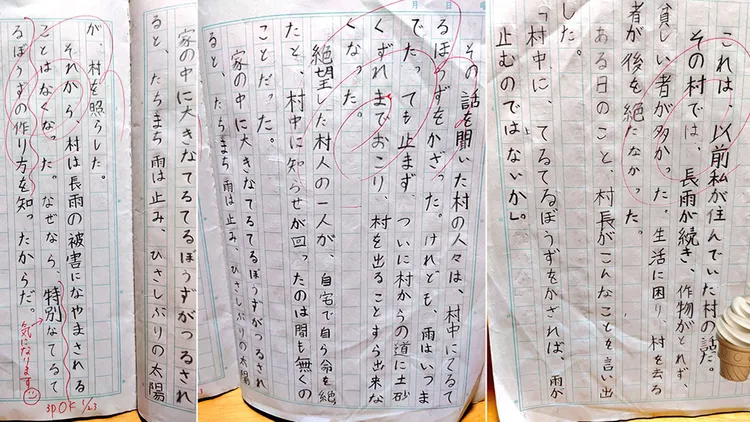 これは、以前私が住んでいた村の話だ。
その村では、長雨が続き、作物がとれず、
貧しい者が多かった。生活に困り、村を去る
者が後を絶たなかった。
ある日のこと、村長がこんなことを言い出
した。
「村中に、てるてるぼうずをかざれば、雨が
止むのではないか」。
月 日 曜
その話を聞いた村の人々は、村中にてるて
るぼうずをかざった。けれども、雨はいつま
でたっても止まず、ついに村からの道に土砂
くずれまでおこり、村を出ることすら出来な
くなった。
絶望した村人の一人が、自宅で自ら命を絶
たと、村中に知らせが回ったのは間も無くの
ことだった。
家の中に大きなてるてるぼうずがつるされ
ると、たちまち雨は止み、ひさしぶりの太陽
家の中に大きなてるてるぼうずがつるされ
ると、たちまち雨は止み、ひさしぶりの太陽
が、村を照らした。
それから、村は長雨の被害になやまされる
ことはなくなった。なぜなら、特別なてるて
るぼうずの作り方を知ったからだ。
気になります
OK 1/23